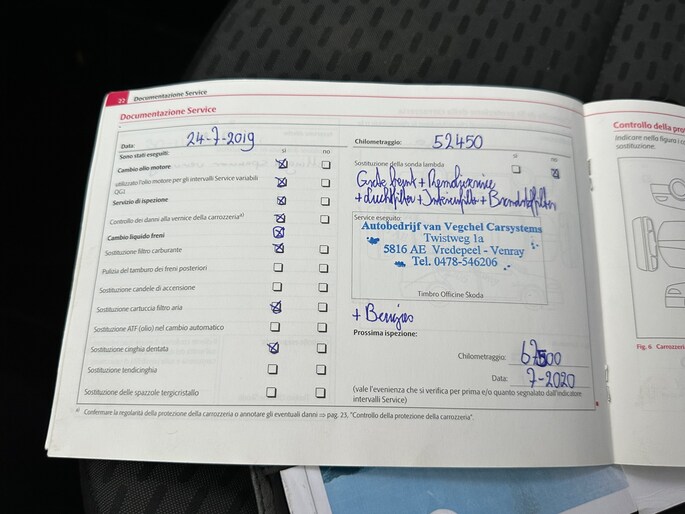 22 Documentazione Service
Documentazione Service
Data: 24-7-2019
Chilometraggio: 52450
Sono stati eseguiti: si no
Cambio olio motore
utilizzato l'olio motore per gli intervalli Service variabili
QG1
Servizio di ispezione
Controllo dei danni alla vernice della carrozzeria a)
Cambio liquido freni
Sostituzione filtro carburante
Pulizia del tamburo dei freni posteriori
Sostituzione candele di accensione
Sostituzione cartuccia filtro aria
Sostituzione ATF (olio) nel cambio automatico
Sostituzione cinghia dentata
Sostituzione tendicinghia
Sostituzione delle spazzole tergicristallo
si no
Sostituzione della sonda lambda
Grote beurt + Remvloeistof
+ Luchtfilter + Interieurfilter + Brandstoffilter
Service eseguito:
Autobedrijf van Vegchel Carsystems
Twistweg 1a
5816 AE Vredepeel - Venray
Tel. 0478-546206
Timbro Officine Škoda
+
Prossima ispezione:
Chilometraggio: 67500
Data: 7-2020
(vale l'evenienza che si verifica per prima e/o quanto segnalato dall'indicatore
intervalli Service)
a) Confermare la regolarità della protezione della carrozzeria o annotare gli eventuali danni ⇒ pag. 23, "Controllo della protezione della carrozzeria".
Controllo della
indicare nella figura i
sostituzione.
Fig. 6